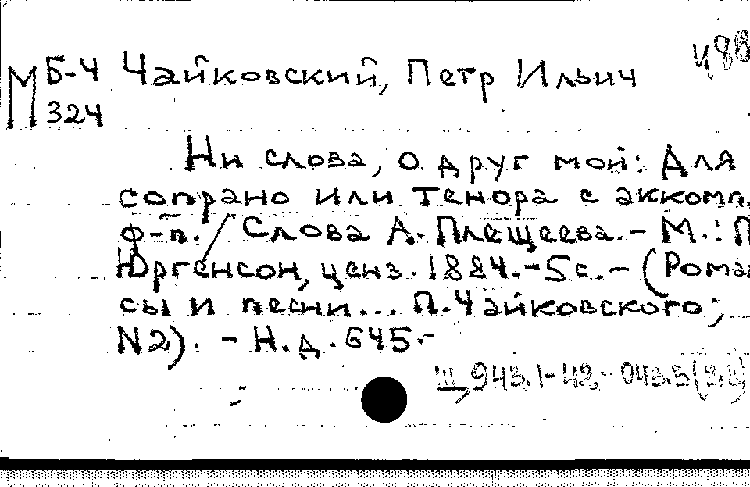 М Б-4 Чайковский, Петр Ильич
324
Ни слова, о друг мой: Для
сопрано или тенора с аккомп.
ф-п. / Слова А. Плещеева. - М.: П.
Юргенсон, ценз. 1884. - 5с. - (Рома
сы и песни... П. Чайковского;
N2). - Н.д. 645. -